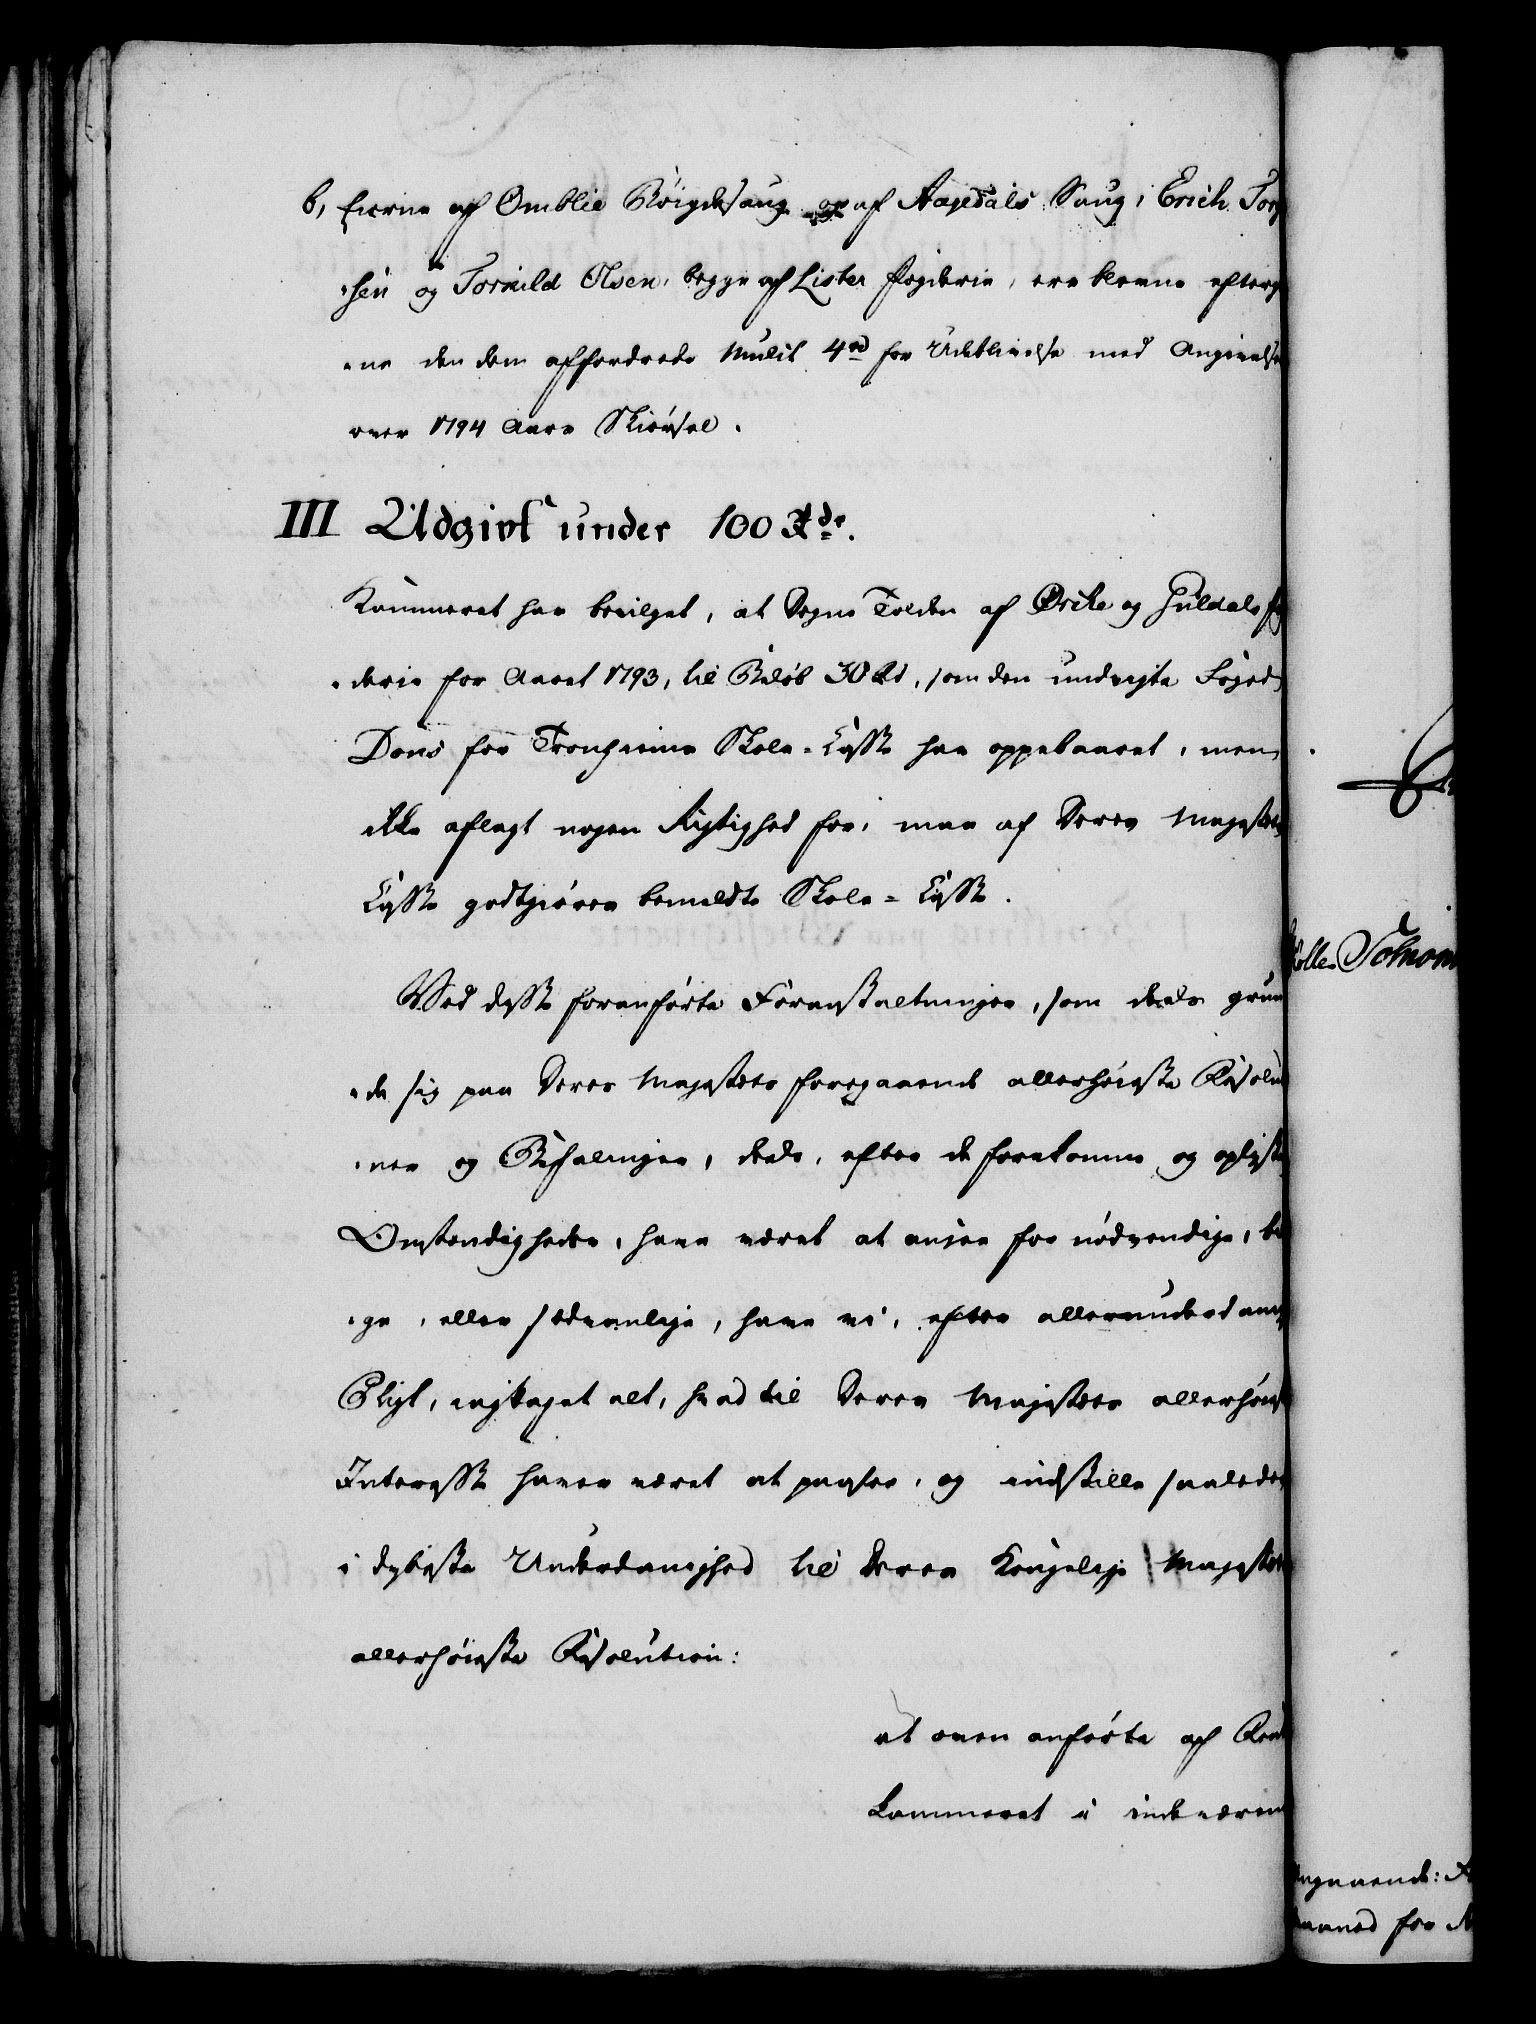 b, Eierne af Omblie Bøigdesaug og af Aagedals Saug, Erich Tor
sen og Torkild Olsen, begge af Lister Fogderie, ere blevne efterg
ne den dem affordrede Mulct 4 rd for Udeblivelse med Angivelse
over 1794 Aars Skiørsel.
III Udgivt under 100 Rdr.
Kammeret har bevilget, at Sogne Tolden af Orcke og Guldals Fo
derie for Aaret 1793, til Beløb 30 Rd, som den undvigte Foged
Dons for Tronhiems Skole-Casse har oppebaaret, men
ikke aflagt nogen Rigtighed for, maa af Deres Majestæts
Casse godtgiøres bemeldte Skole-Casse.
Ved disse foranførte Foranstaltninger, som deels grun
de sig paa Deres Majestæts foregaaende allerhøieste Resolu
ner og Befalinger, deels, efter de forekomne og oplyste
Omstændigheder, have været at ansee for nødvendige, bi
ge, eller sædvanlige, have vi, efter allerunderdanig
Pligt, iagttaget alt, hvad til Deres Majestæts allerhøiest
Interesse haver været at paasee, og indstille saaledes
i dybeste Underdanighed til Deres Kongelige Majestæts
allerhøieste Resolution:
at oven anførte af Rente
kammeret i indeværen
Solmoni
angaaende:
for